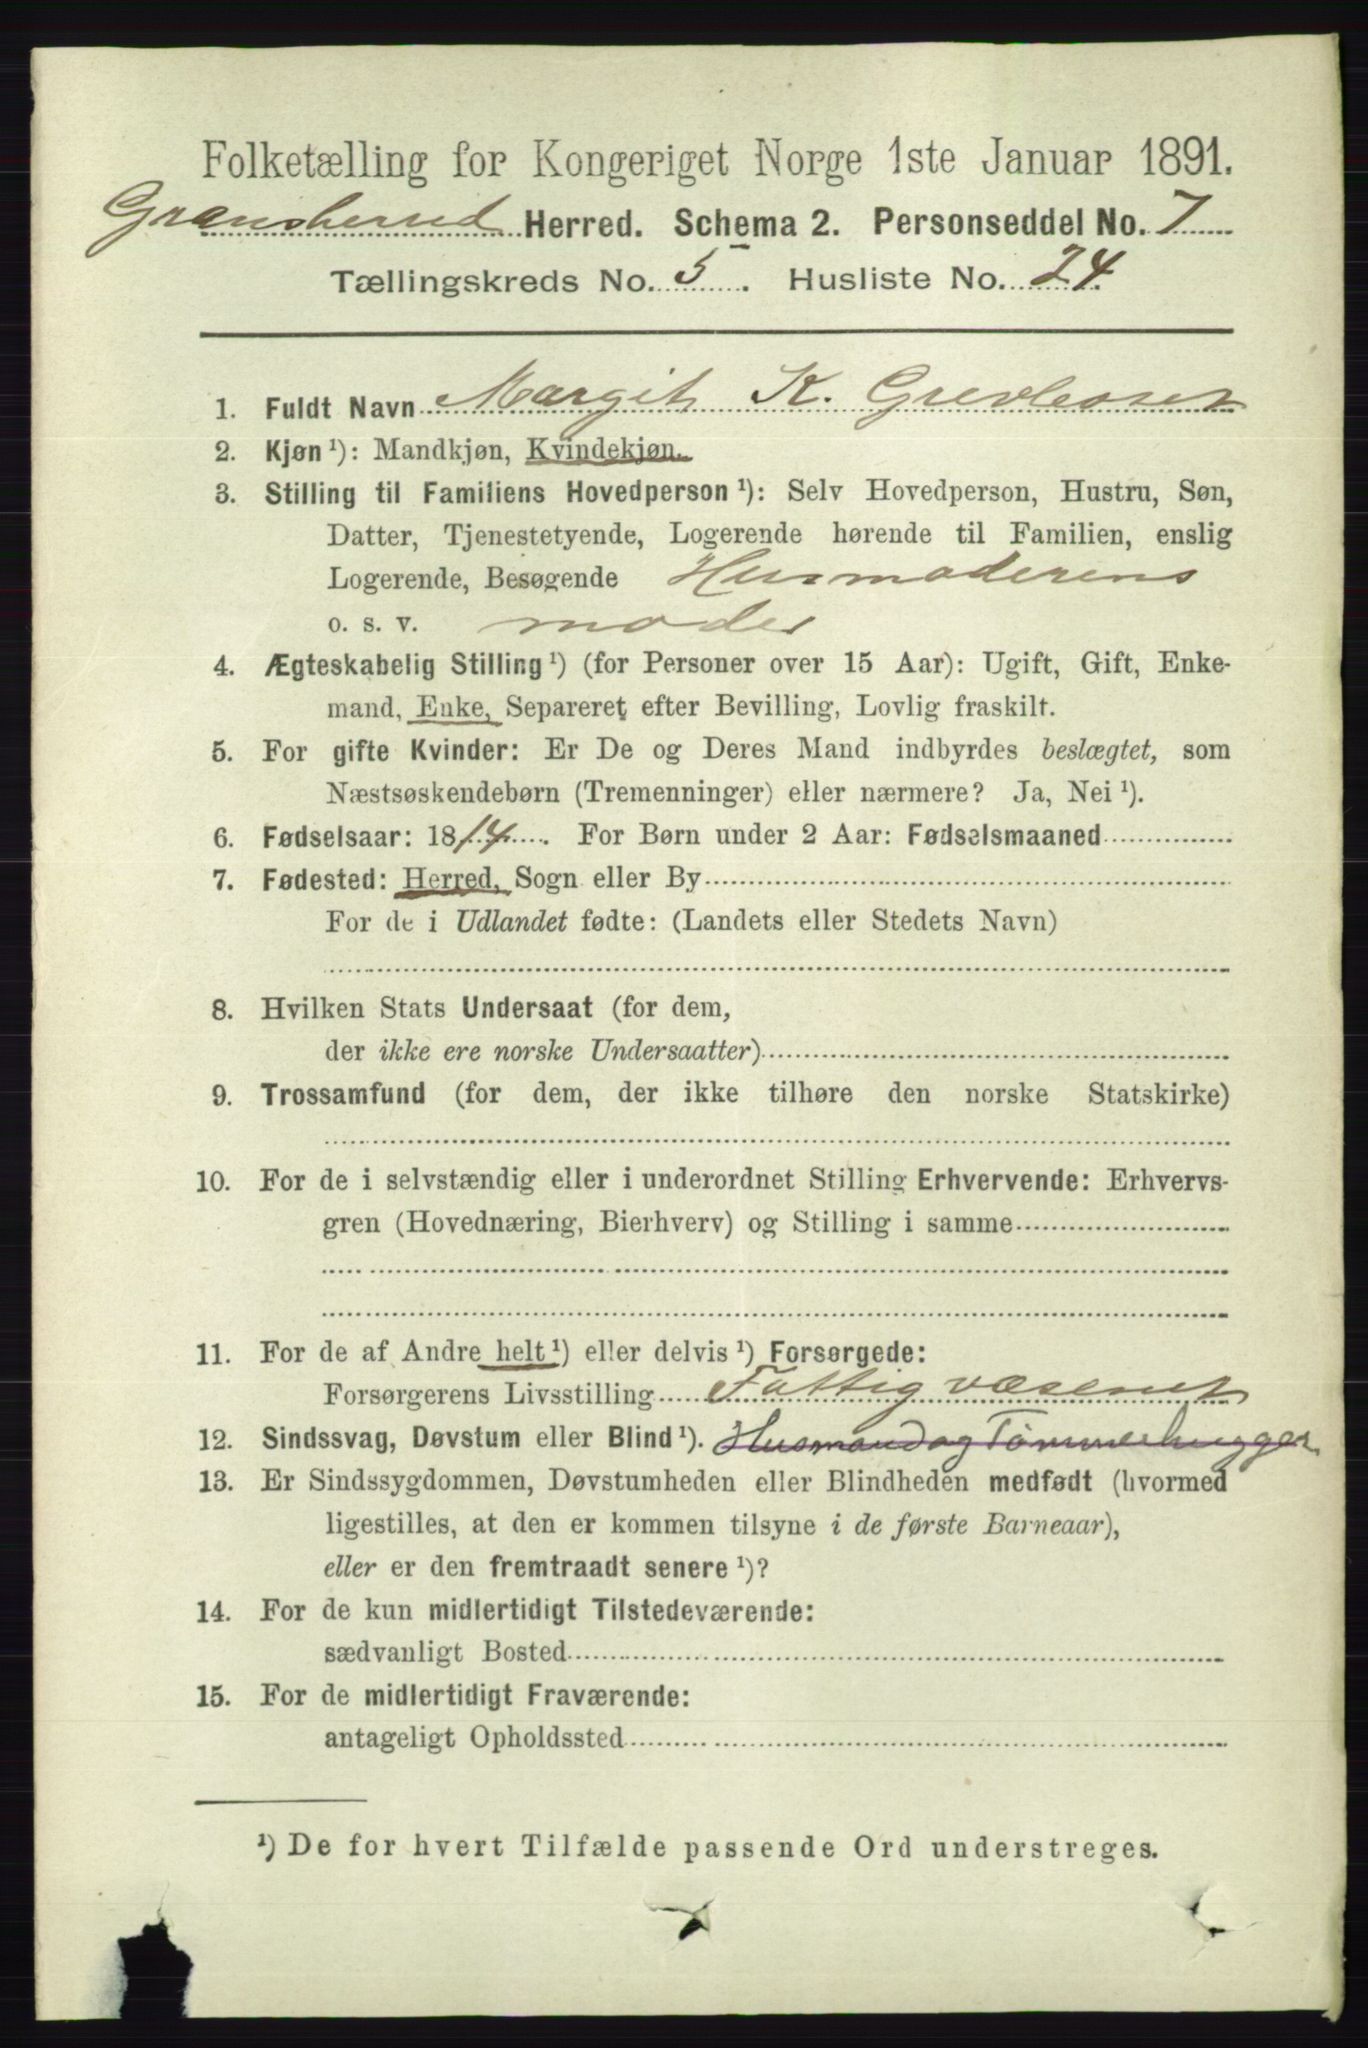 Folketælling for Kongeriget Norge 1ste Januar 1891.
Gransherred Herred. Schema 2. Personseddel No. 7
Tællingskreds No. 5. Husliste No. 24.
1. Fuldt Navn Margit K.
2. Kjøn ¹): Mandkjøn, Kvindekjøn.
3. Stilling til Familiens Hovedperson ¹): Selv Hovedperson, Hustru, Søn,
Datter, Tjenestetyende, Logerende hørende til Familien, enslig
Logerende, Besøgende Husmoderens
o. s. v. moder
4. Ægteskabelig Stilling ¹) (for Personer over 15 Aar): Ugift, Gift, Enke-
mand, Enke, Separeret efter Bevilling, Lovlig fraskilt.
5. For gifte Kvinder: Er De og Deres Mand indbyrdes beslægtet, som
Næstsøskendebørn (Tremenninger) eller nærmere? Ja, Nei ¹).
6. Fødselsaar: 1814. For Børn under 2 Aar: Fødselsmaaned
7. Fødested: Herred, Sogn eller By
For de i Udlandet fødte: (Landets eller Stedets Navn)
8. Hvilken Stats Undersaat (for dem,
der ikke ere norske Undersaatter)
9. Trossamfund (for dem, der ikke tilhøre den norske Statskirke)
10. For de i selvstændig eller i underordnet Stilling Erhvervende: Erhvervs-
gren (Hovednæring, Bierhverv) og Stilling i samme
11. For de af Andre helt ¹) eller delvis ¹) Forsørgede:
Forsørgerens Livsstilling Fattigvæsenet
12. Sindssvag, Døvstum eller Blind ¹). Husmand og Tømmerhugger
13. Er Sindssygdommen, Døvstumheden eller Blindheden medfødt (hvormed
ligestilles, at den er kommen tilsyne i de første Barneaar),
eller er den fremtraadt senere ¹)?
14. For de kun midlertidigt Tilstedeværende:
sædvanligt Bosted
15. For de midlertidigt Fraværende:
antageligt Opholdssted
¹) De for hvert Tilfælde passende Ord understreges.